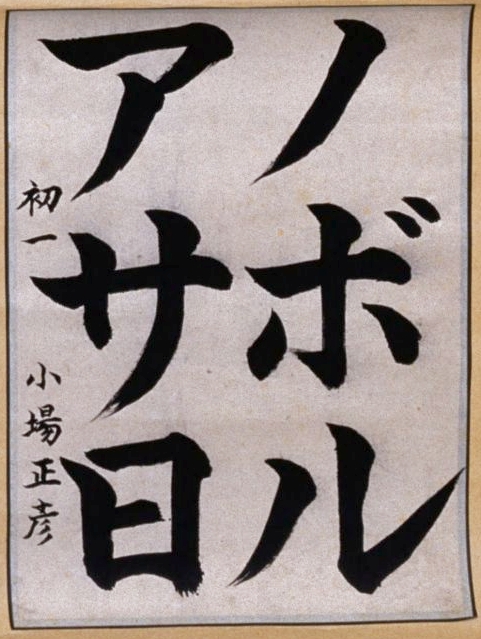 ノボル
アサ日
初一 小場正彦